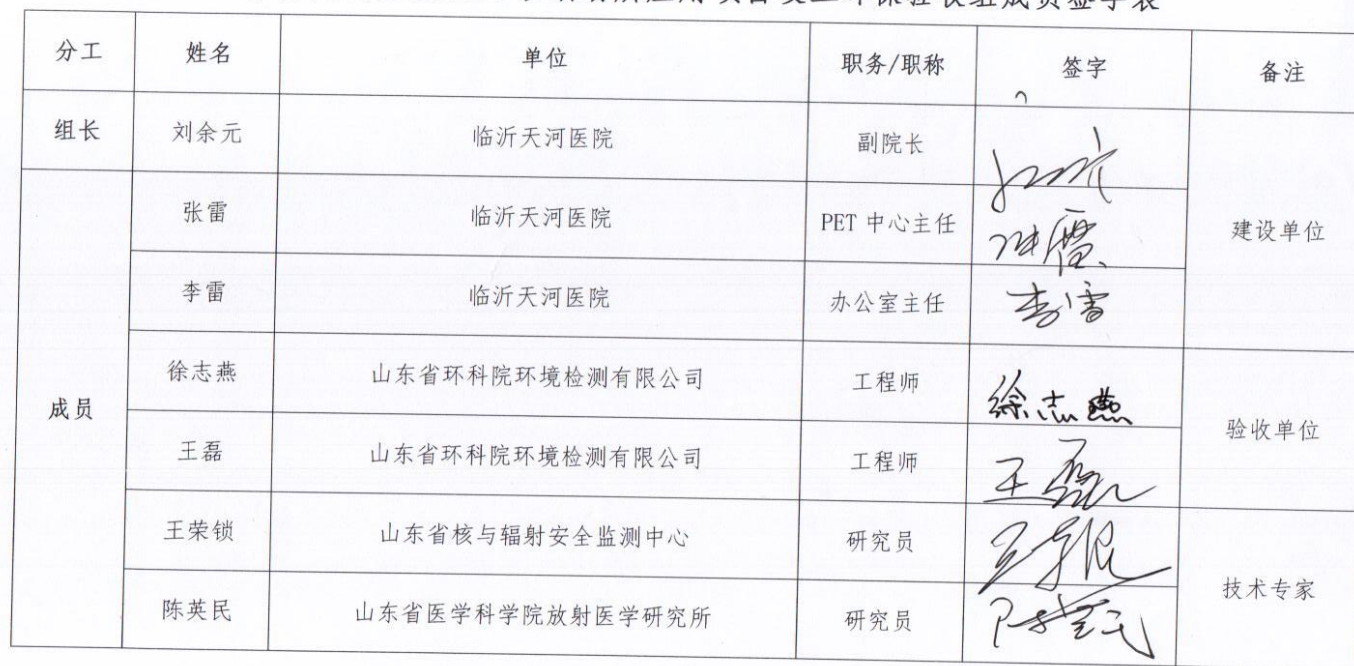 应用项目竣工环保验收组成员签字表
分工 姓名 单位 职务/职称 签字 备注
组长 刘余元 临沂天河医院 副院长
张雷 临沂天河医院 PET中心主任 张雷 建设单位
李雷 临沂天河医院 办公室主任 李雷
成员 徐志燕 山东省环科院环境检测有限公司 工程师 徐志燕
王磊 山东省环科院环境检测有限公司 工程师 王磊 验收单位
王荣锁 山东省核与辐射安全监测中心 研究员
陈英民 山东省医学科学院放射医学研究所 研究员 陈英民 技术专家